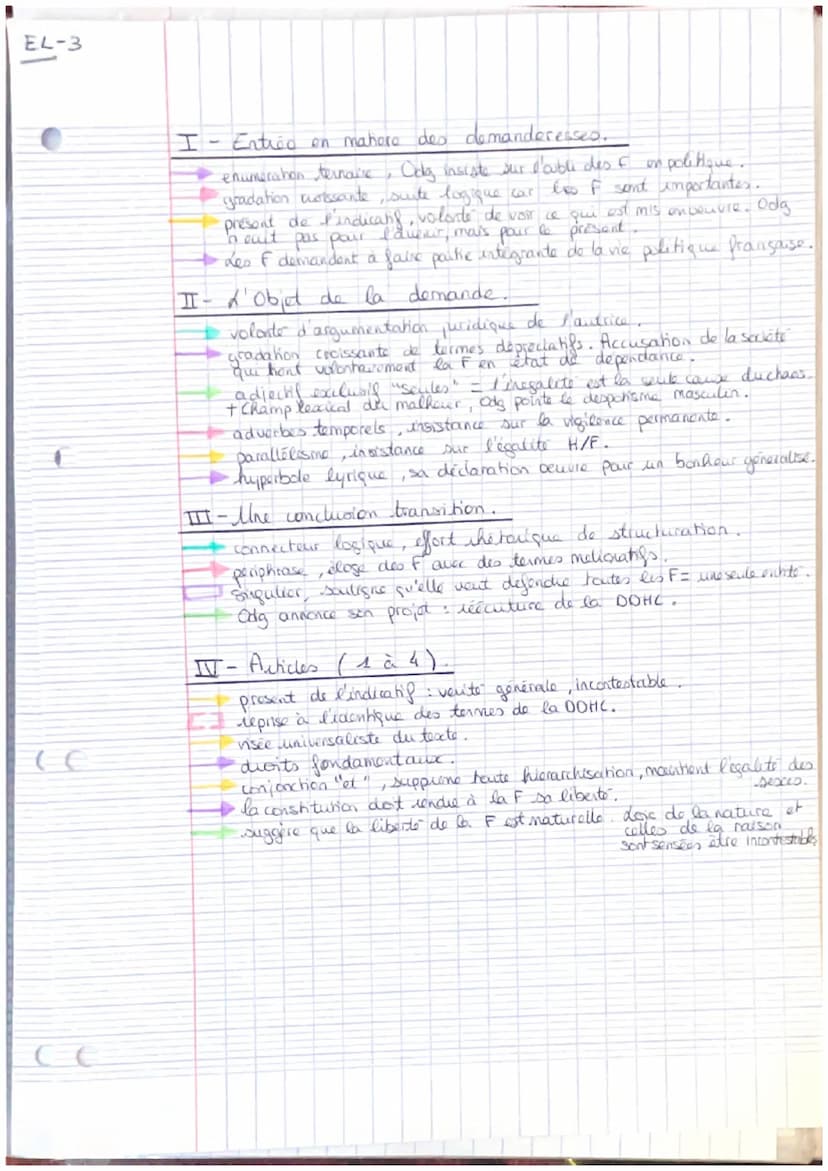 EL-3
I - Entrée en matière des demanderesses.
énumération ternaire, Odg insiste sur l'oubli des F en politique.
gradation croissante, suite logique car les F sont importantes.
présent de l'indicatif, volonté de voir ce qui est mis en oeuvre. Odg
n'écrit pas pour l'avenir, mais pour le présent.
Les F demandent à faire partie intégrante de la vie politique française.
II - L'Objet de la demande.
volonté d'argumentation juridique de l'autrice.
gradation croissante de termes dépréciatifs. Accusation de la société
qui tient volontairement la F en état de dépendance.
adjectif exclusif "seules" = l'inégalité est la seule cause du chaos.
+ champ lexical du malheur, Odg pointe le despotisme masculin.
adverbes temporels, insistance sur la vigilance permanente.
parallélisme, insistance sur l'égalité H/F.
hyperbole lyrique, sa déclaration oeuvre pour un bonheur généralisé.
III - Une conclusion transition.
connecteur logique, effort rhétorique de structuration.
périphrase, éloge des F avec des termes mélioratifs.
singulier, souligne qu'elle veut défendre toutes les F = une seule entité.
Odg annonce son projet : réécriture de la DDHC.
IV - Articles (1 à 4).
présent de l'indicatif : vérité générale, incontestable.
reprise à l'identique des termes de la DDHC.
visée universaliste du texte.
droits fondamentaux.
conjonction "et", supprime toute hiérarchisation, maintient l'égalité des
sexes.
la constitution doit rendre à la F sa liberté.
suggère que la liberté de la F est naturelle. Loic de la nature et
celles de la raison
sont sensées être incontestables